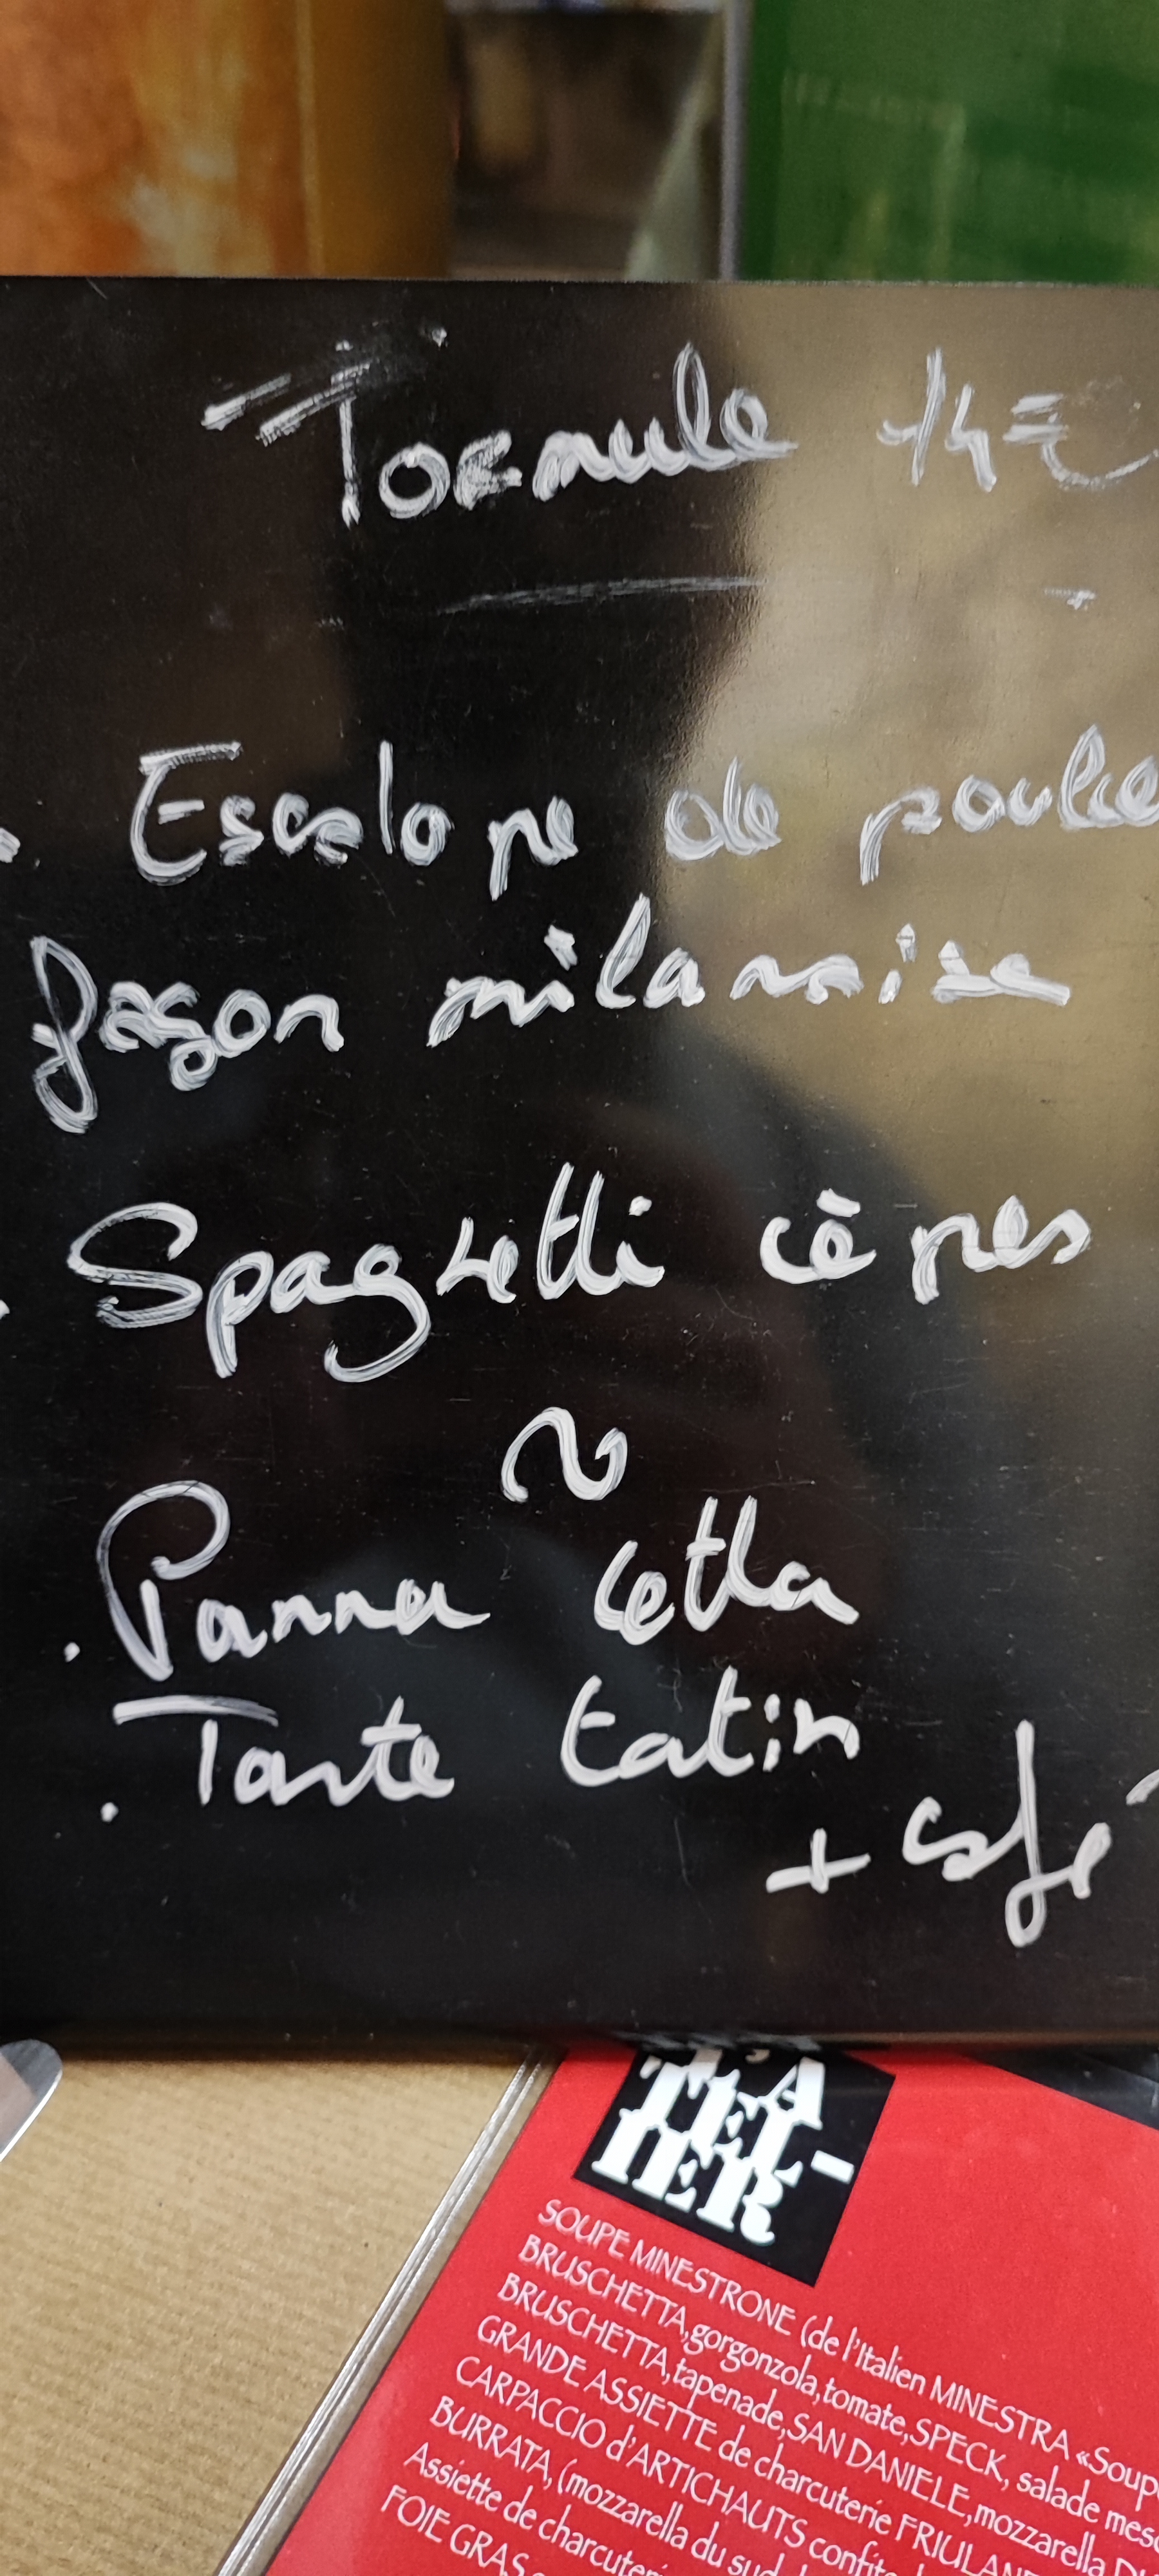 Formule 14€
. Escalope de poulet
façon milanaise
. Spaghetti cèpes
~
. Panna cotta
. Tarte tatin
+ café
L'A
TEL-
IER
SOUPE MINESTRONE (de l'Italien MINESTRA «Soup
BRUSCHETTA,gorgonzola,tomate,SPECK, salade mes
BRUSCHETTA,tapenade,SAN DANIELE,mozzarella D
GRANDE ASSIETTE de charcuterie FRIULAN
CARPACCIO d'ARTICHAUTS confits
BURRATA, (mozzarella du sud
Assiette de charcuteri
FOIE GRAS